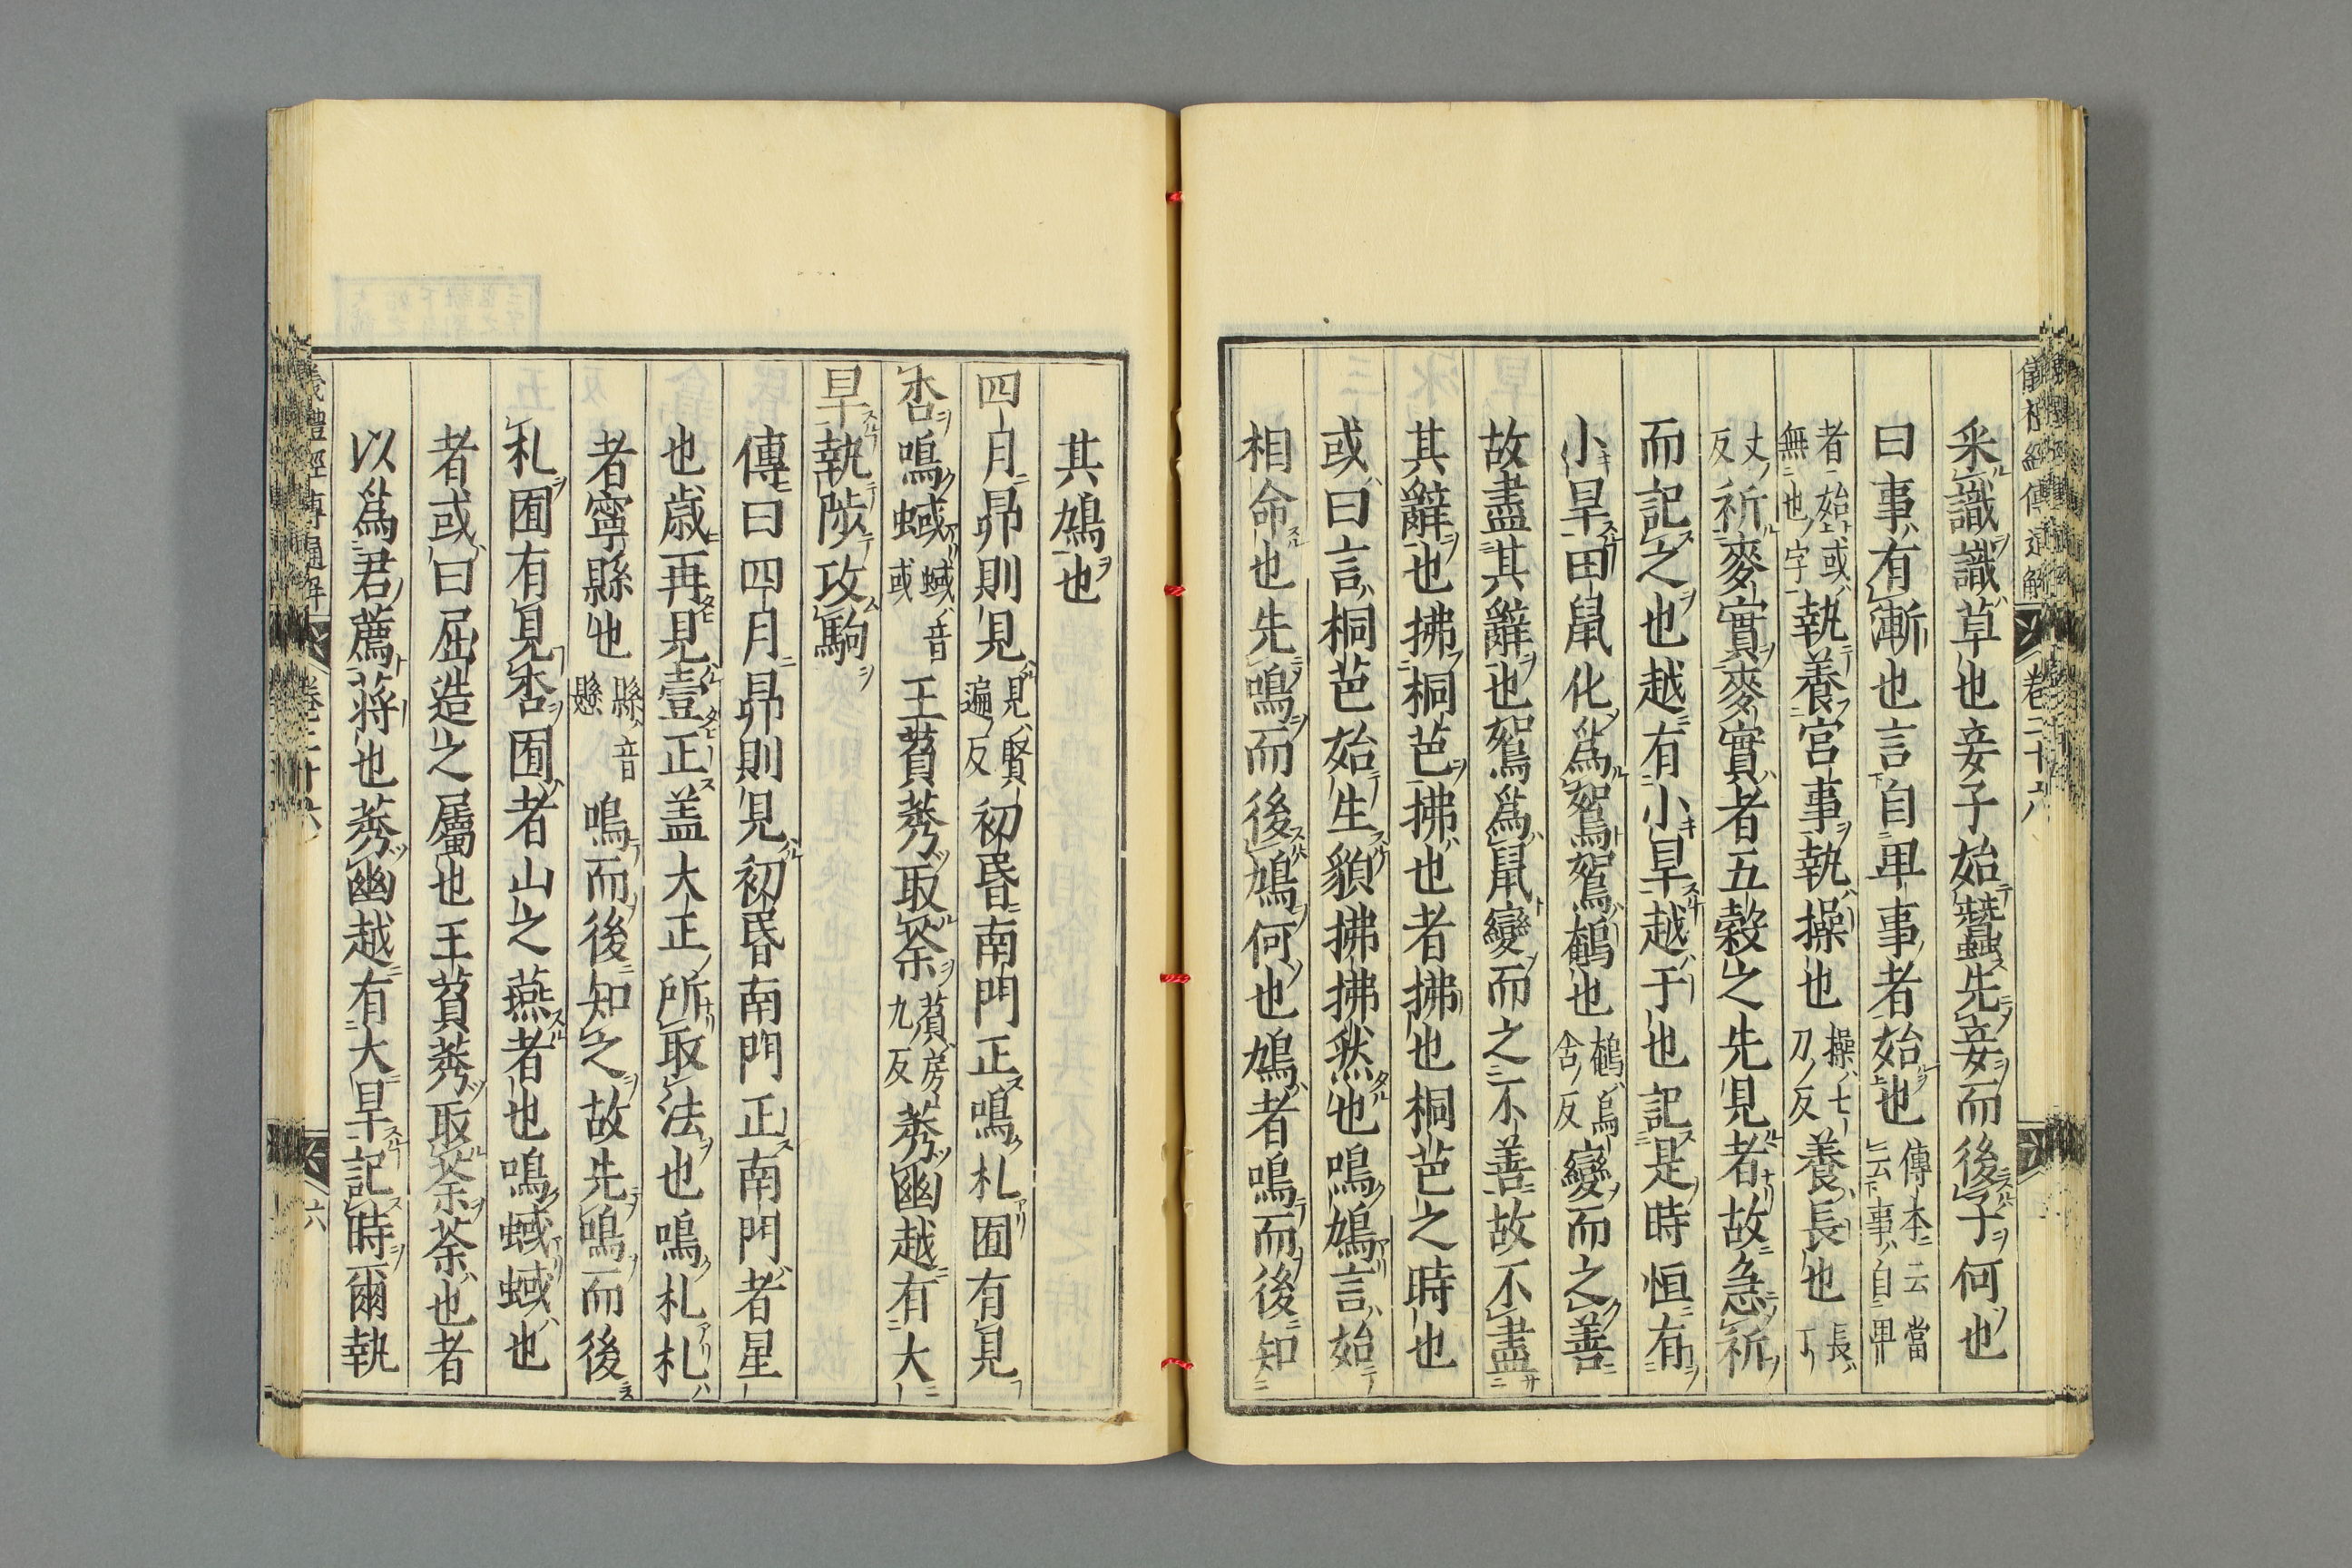 儀禮經傳通解
卷二十六
采識識草也妾子始蠶先妾而後子何也
曰事有漸也言自卑事者始也傳本云當云事自卑
者始或無也字執養宮事執操也操七刀反養長也長丁
丈反祈麥實麥實者五穀之先見者故急祈
而記之也越有小旱越于也記是時恒有
小旱田鼠化爲鴽鴽鵪也鵪烏含反變而之善
故盡其辭也鴽爲鼠變而之不善故不盡
其辭也拂桐芭拂也者拂也桐芭之時也
或曰言桐芭始生貌拂拂然也鳴鳩言始
相命也先鳴而後鳩何也鳩者鳴而後知
其鳩也
四月昴則見見賢遍反初昏南門正鳴札囿有見
杏鳴蜮蜮音或王萯莠取荼萯房九反莠幽越有大
旱執陟攻駒
傳曰四月昴則見初昏南門正南門者星
也歲再見壹正蓋大正所取法也鳴札札
者寧縣也縣音懸鳴而後知之故先鳴而後
札囿有見杏囿者山之燕者也鳴蜮蜮也
者或曰屈造之屬也王萯莠取荼荼也者
以爲君薦蔣也莠幽越有大旱記時爾執
六